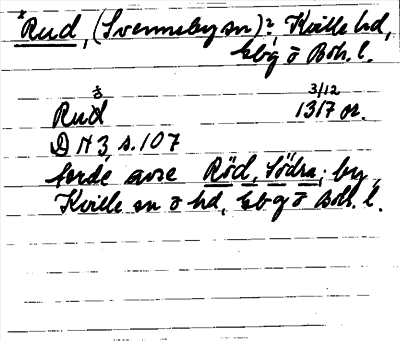 *Rud, (Svenneby sn)? Kville hd,
Gbg o Boh. l.
Rud 3/12 1317 or.
DN 3, s. 107
borde avse Röd, Södra, by,
Kville sn o hd, Gbg o Boh. l.